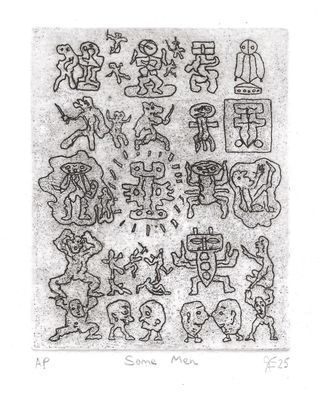 AP Some Men 25